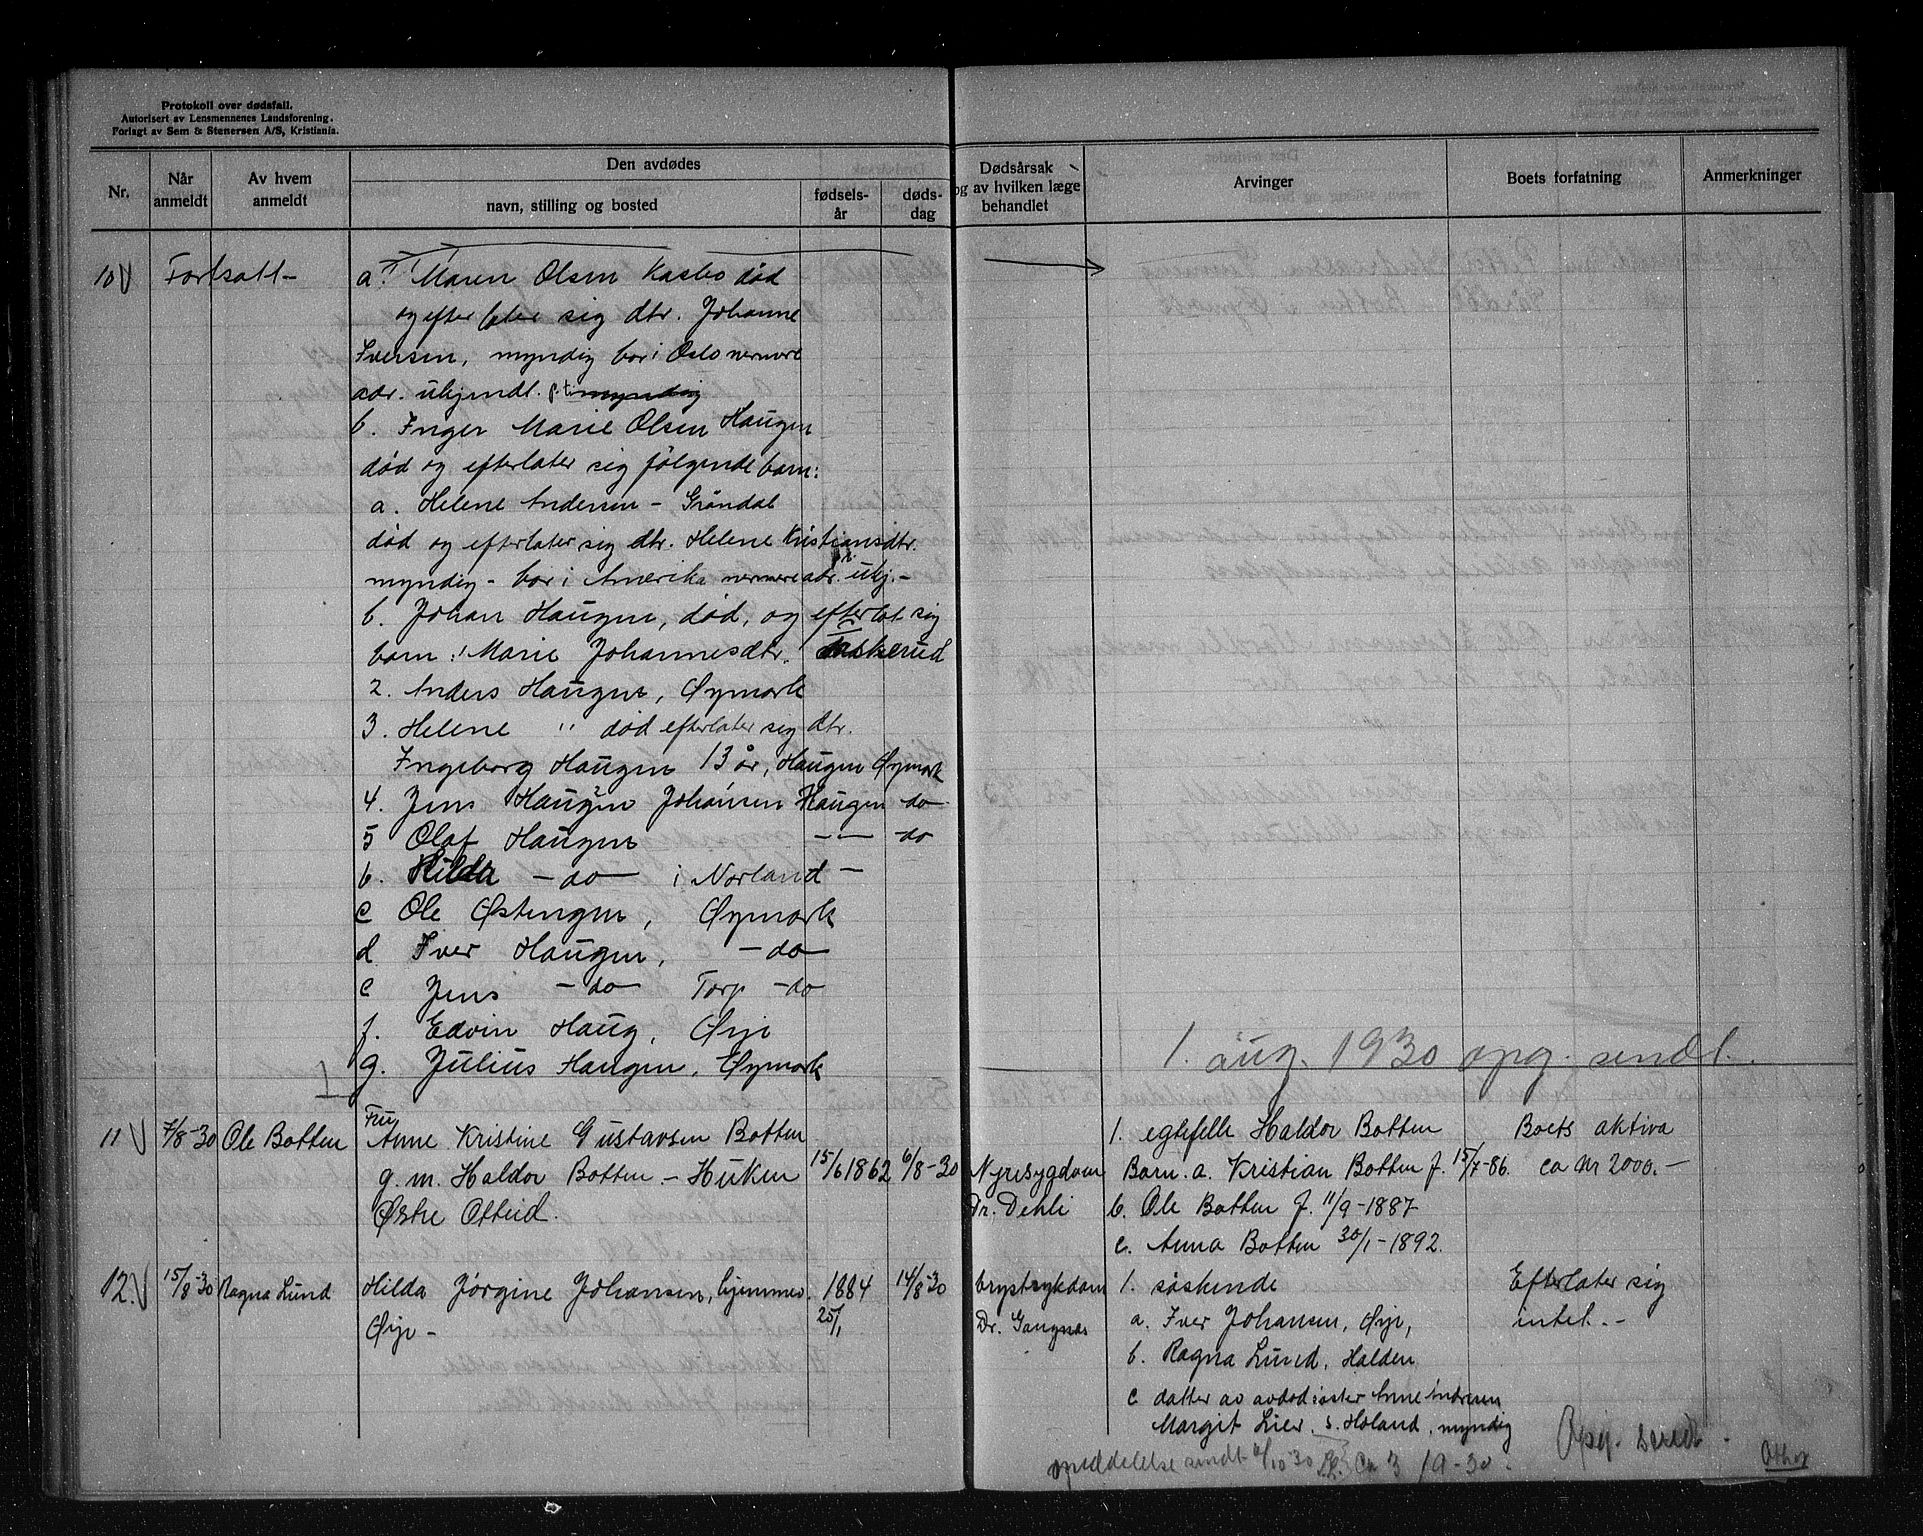 Protokoll over dødsfall.
Autorisert av Lensmennenes Landsforening.
Forlagt av Sem & Stenersen A/S, Kristiania.
Nr.
Når anmeldt
Av hvem anmeldt
Den avdødes
navn, stilling og bosted
fødselsår
dødsdag
Dødsårsak og av hvilken læge behandlet
Arvinger
Boets forfatning
Anmerkninger
10 Fortsatt-
a. Maren Olsen Kasbo død
og efter sig dtr. Johanne
Iversen, myndig bor i Oslo nermere
adr. ukjendt. p.t. myndig
b. Inger Marie Olsen Haugen
død og efterlater sig følgende barn:
a. Helene Andersen - Grøndal
død og efterlater sig dtr. Helene Kristiansdtr.
myndig - bor i Amerika nermere adr. ukj. -
b. Johan Haugen, død, og efterlot sig
barn: 1 Marie Johannesdtr.
2. Anders Haugen, Øymark
3. Helene " død efterlater sig dtr.
Ingeborg Haugen 13 år, Haugen Øymark
4. Jens Haugen Johansen Haugen -do-
5 Olaf Haugen -"- -do
6. Hilda -do- i Norland -
c Ole Østengen, Øymark
d Iver Haugen, -do-
e Jens -do- Torp -do
f. Edvin Haug, Ørje
g. Julius Haugen, Øymark
1. aug. 1930 opg. sendt.
11 7/8-30 Ole Botten Fru
Anne Kristine Gustavsen Botten
g. m. Haldor Botten - Huken 15/6 1862 6/8-30
Østre Otteid.
Nyresygdom
Dr. Dehli
1. egtefelle Haldor Botten
Barn. a. Kristian Botten f. 15/7-86.
b. Ole Botten f. 11/9-1887
c. Anna Botten 30/1-1892.
Boets aktiva
ca kr 2000.-
12. 15/8-30 Ragna Lund Hilda Jørgine Johansen, hjemmev. 1884 14/8-30
Ørje - 25/1
brystsykdom
Dr. Gangnæs
1. søskende
a. Iver Johansen, Ørje,
b. Ragna Lund, Halden
c datter av avdød søster Anne Andresen
Margit Lier. s. Høland, myndig
Efterlater sig
intet. -
Opg. sendt -
meddelelse sendt 6/10 30 19-30.